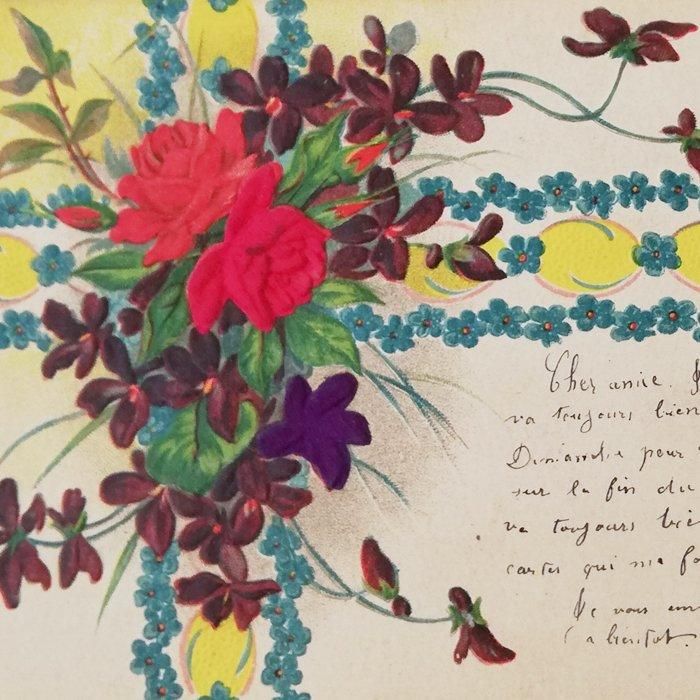 Cher amie.
va toujours bien
Dimanche pour
sur la fin du
va toujours bie
cartes qui me fo
Je vous em
a bientot.